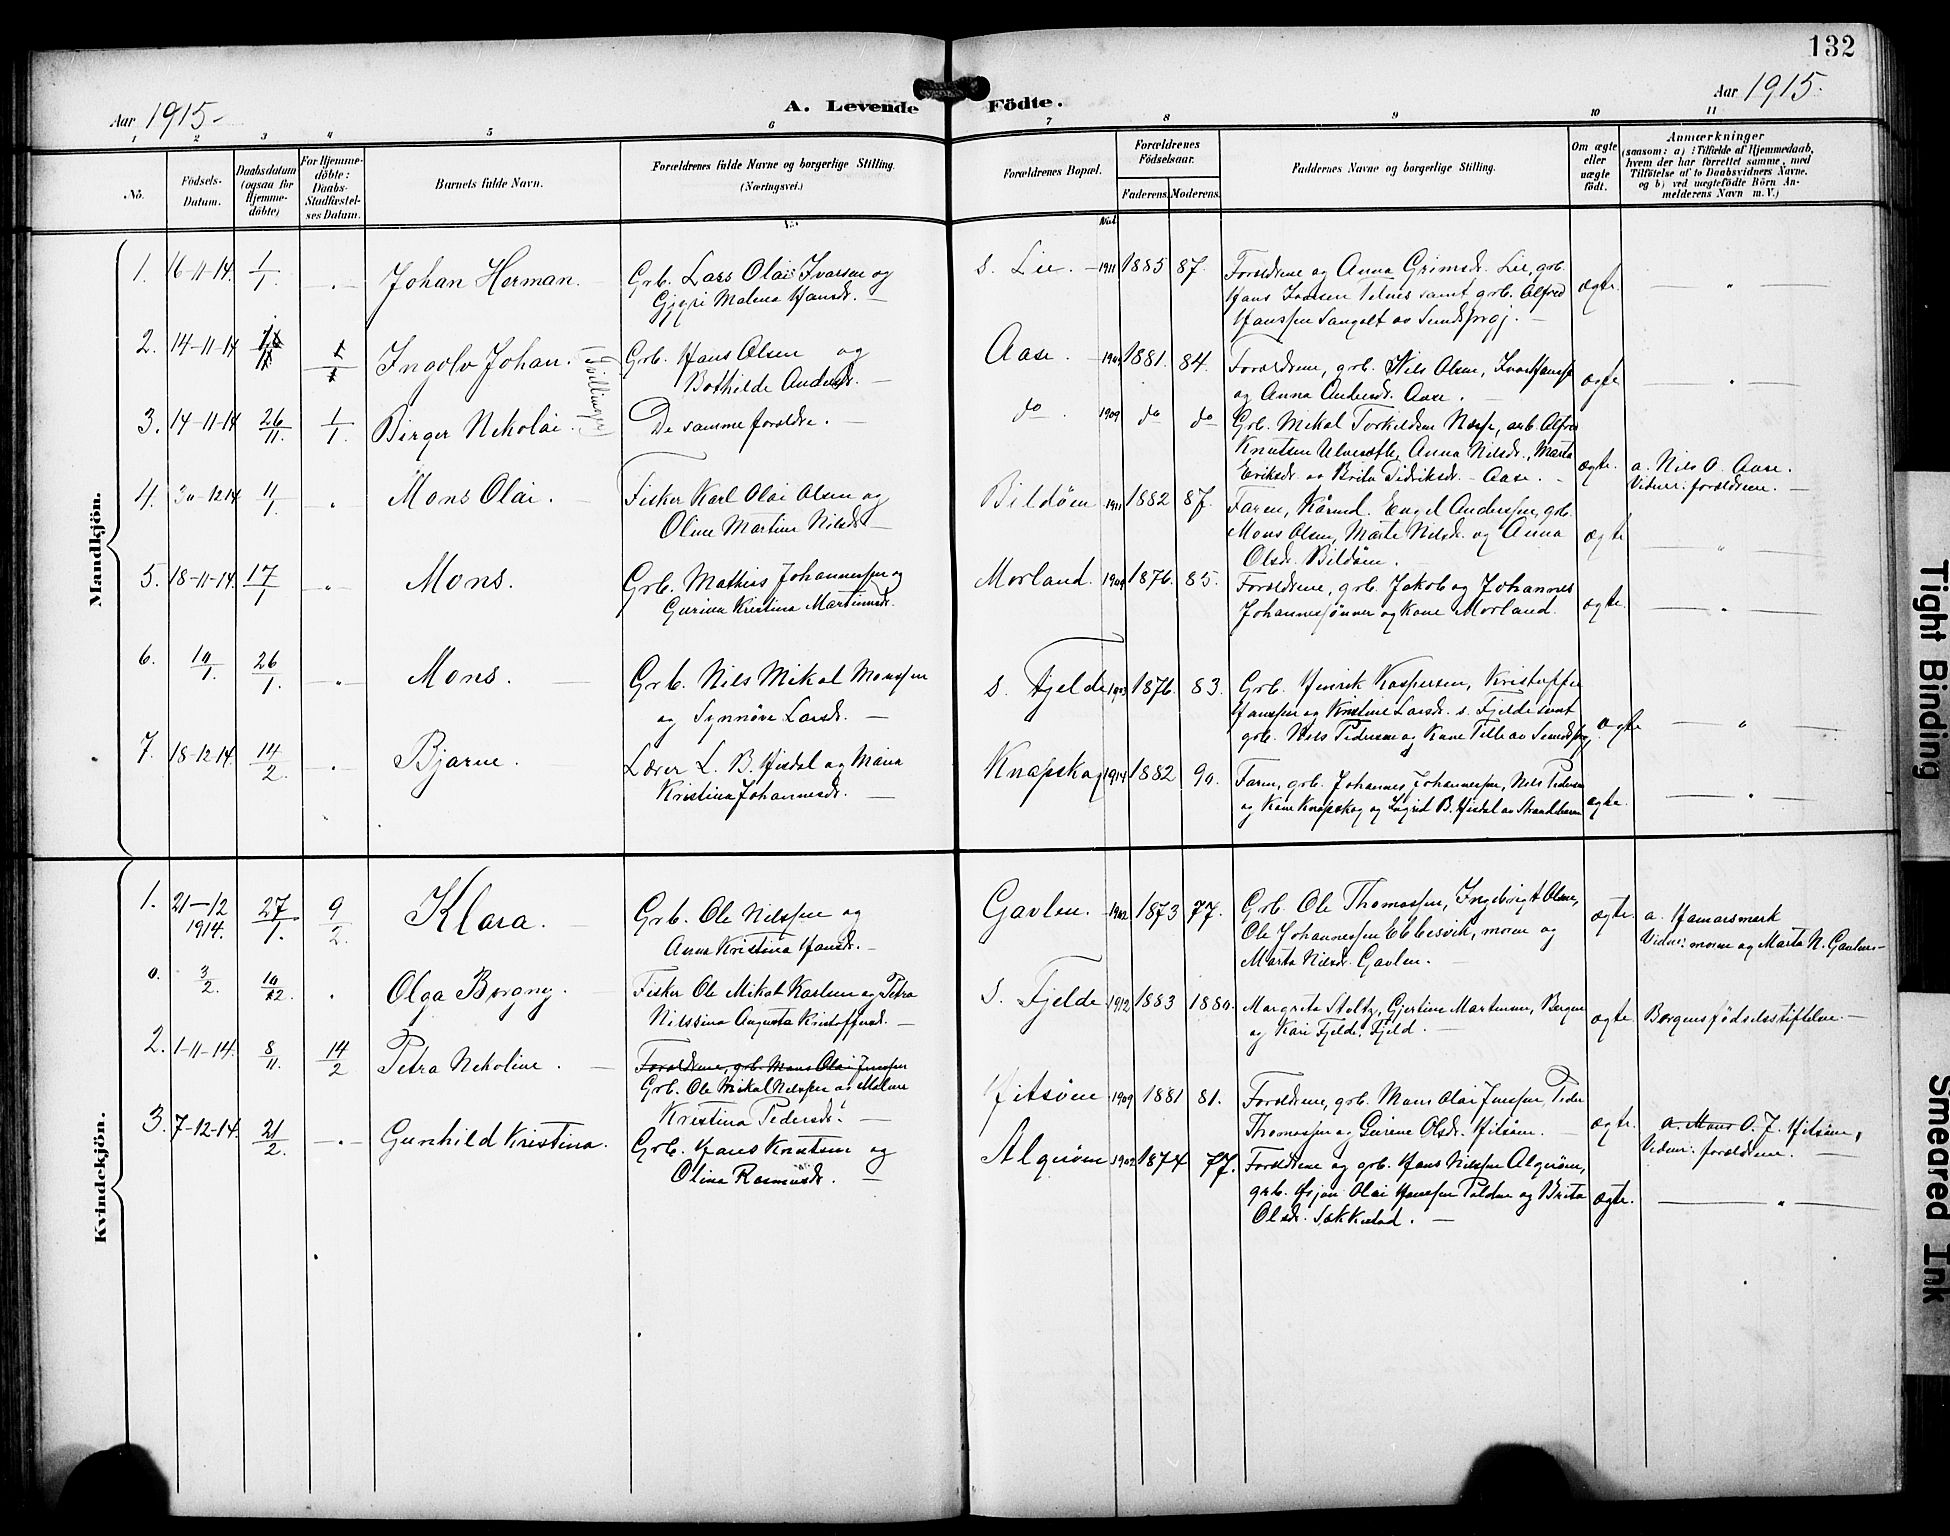 132
Aar 1915.
A. Levende Födte.
Aar 1915.
1 2 3 4 5 6 7 8 9 10 11
No.
Födsels-Datum.
Daabsdatum (ogsaa for Hjemme-döbte)
For Hjemme-döbte: Daabs-Stadfæstel-ses Datum.
Barnets fulde Navn.
Forældrenes fulde Navne og borgerlige Stilling. (Næringsvei.)
Forældrenes Bopæl.
Forældrenes Födselsaar.
Faderens. Moderens.
Faddernes Navne og borgerlige Stilling.
Om ægte eller uægte födt.
Anmærkninger
(saasom: a) i Tilfælde af Hjemmedaab,
hvem der har forrettet samme, med
Tilföielse af to Daabsvidners Navne,
og b) ved uægtefödte Börn An-
melderens Navn m. V.)
Mandkjön.
1. 16-11-14. 1/1 Johan Herman. Grb. Lars Olai Ivarsen og
Malena Hansdr.
s. Lie. 1911 1885 87. Forældrene og Anna Grimsdr. Lie, grb.
Hans Ivarsen samt grb. Alfred
Hanssen Sangolt av Sunds
ægte.
2. 14-11-14 Ingolv Johan. Tvillinger
Grb. Hans Olsen og
Bothilde Andersdr.
Aase. 1881. 84. Forældrene, grb. Nils Olsen,
og Anna Andersdr. Aase.
ægte
3. 14-11-14 26/11. 1/1. Birger Nikolai. De samme forældre.
do. 1909 do do Grb. Mikal Torkildsen Næsse, arb. Alfred
Knutsen Anna Nilsdr., Marta
Eriksdr. og Brita Didriksdr. Aase.
ægte. a. Nils O. Aase.
Vidner: forældrene.
4. 30-12-14 11/1. Mons Olai. Fisker Karl Olai Olsen og
Oline Martine Nilsdr.
Bildöen 1911 1882 87. Faren, Engel Anderssen, grb.
Mons Olsen, Marte Nilsdr. og Anna
Olsdr. Bildöen.
ægte
5. 18-11-14. 17/1 Mons. Grb. Mathias Johannessen og
Kristina Martinusdr.
Morland. 1909 1876. 85. Forældrene, grb. Jakob og Johannes
Johannessönner og Kone Morland.
ægte.
6. 10/1. 26/1. Mons. Grb. Nils Mikal Monssen
og Synnöve Larsdr.
s. Fjelde 1876. 83. Grb. Henrik Kaspersen,
Hanssen og Kristine Larsdr. s. Fjelde samt
grb. Nils Pedersen og Kone
ægte
7. 18-12-14. 14/2. Bjarne. Lærer L. B. Hisdal og Maria
Kristina Johannesdr.
Knapskog 1914 1882 90. Faren, grb. Johannes Johannessen, Nils Pedersen
og Kone Knapskog og Ingrid B. Hisdal av Strandebarm
ægte.
Kvindekjön.
1. 21-12 1914. 27/1. 9/2. Klara. Grb. Ole Nilssen og
Anna Kristina Hansdr.
Gavlen. 1902 1873 77. Grb. Ole Thomassen, Ingebrigt Olsen,
Ole Johannessen Ebbesvik, moren og
Marta Nilsdr. Gavlen.
ægte. a. Hamarsmerk
Vidner: moren og Marta N. Gavlen.
0. 3/2. Olga Borgny. Fisker Ole Mikal Karlsen og Petra
Nilssina Augusta Kristoffersdr.
S. Fjelde 1912 1883 1880. Margrete Stoltz, Gjertine Martinsen, Bergen
og Kari Fjelde, Fjeld.
ægte Bergens födselsstiftelse.
2. 1-11-14. 8/11. 14/2 Petra Nikoline. Forældrene, grb. Mons Olai Jenssen
Grb. Ole Mikal Nilssen og Malene
Kristina Pedersdr.
Hitsöen 1909 1881 81. Forældrene, grb. Mons Olai Jenssen, Peder
Thomassen og Olsdr. Hitsöen.
ægte. a. Mons O. J. Hitsöen,
Vidner: forældrene.
3. 7-12-14. 21/2. Gunhild Kristina. Grb. Hans Knutsen og
Olina Rasmusdr.
Algröen 1902 1874 77. Forældrene og grb. Hans Nilssen Algröen,
grb. Olai Hanssen og Brita
Olsdr. Sækkestad.
ægte.
Tight Binding
Smeared Ink